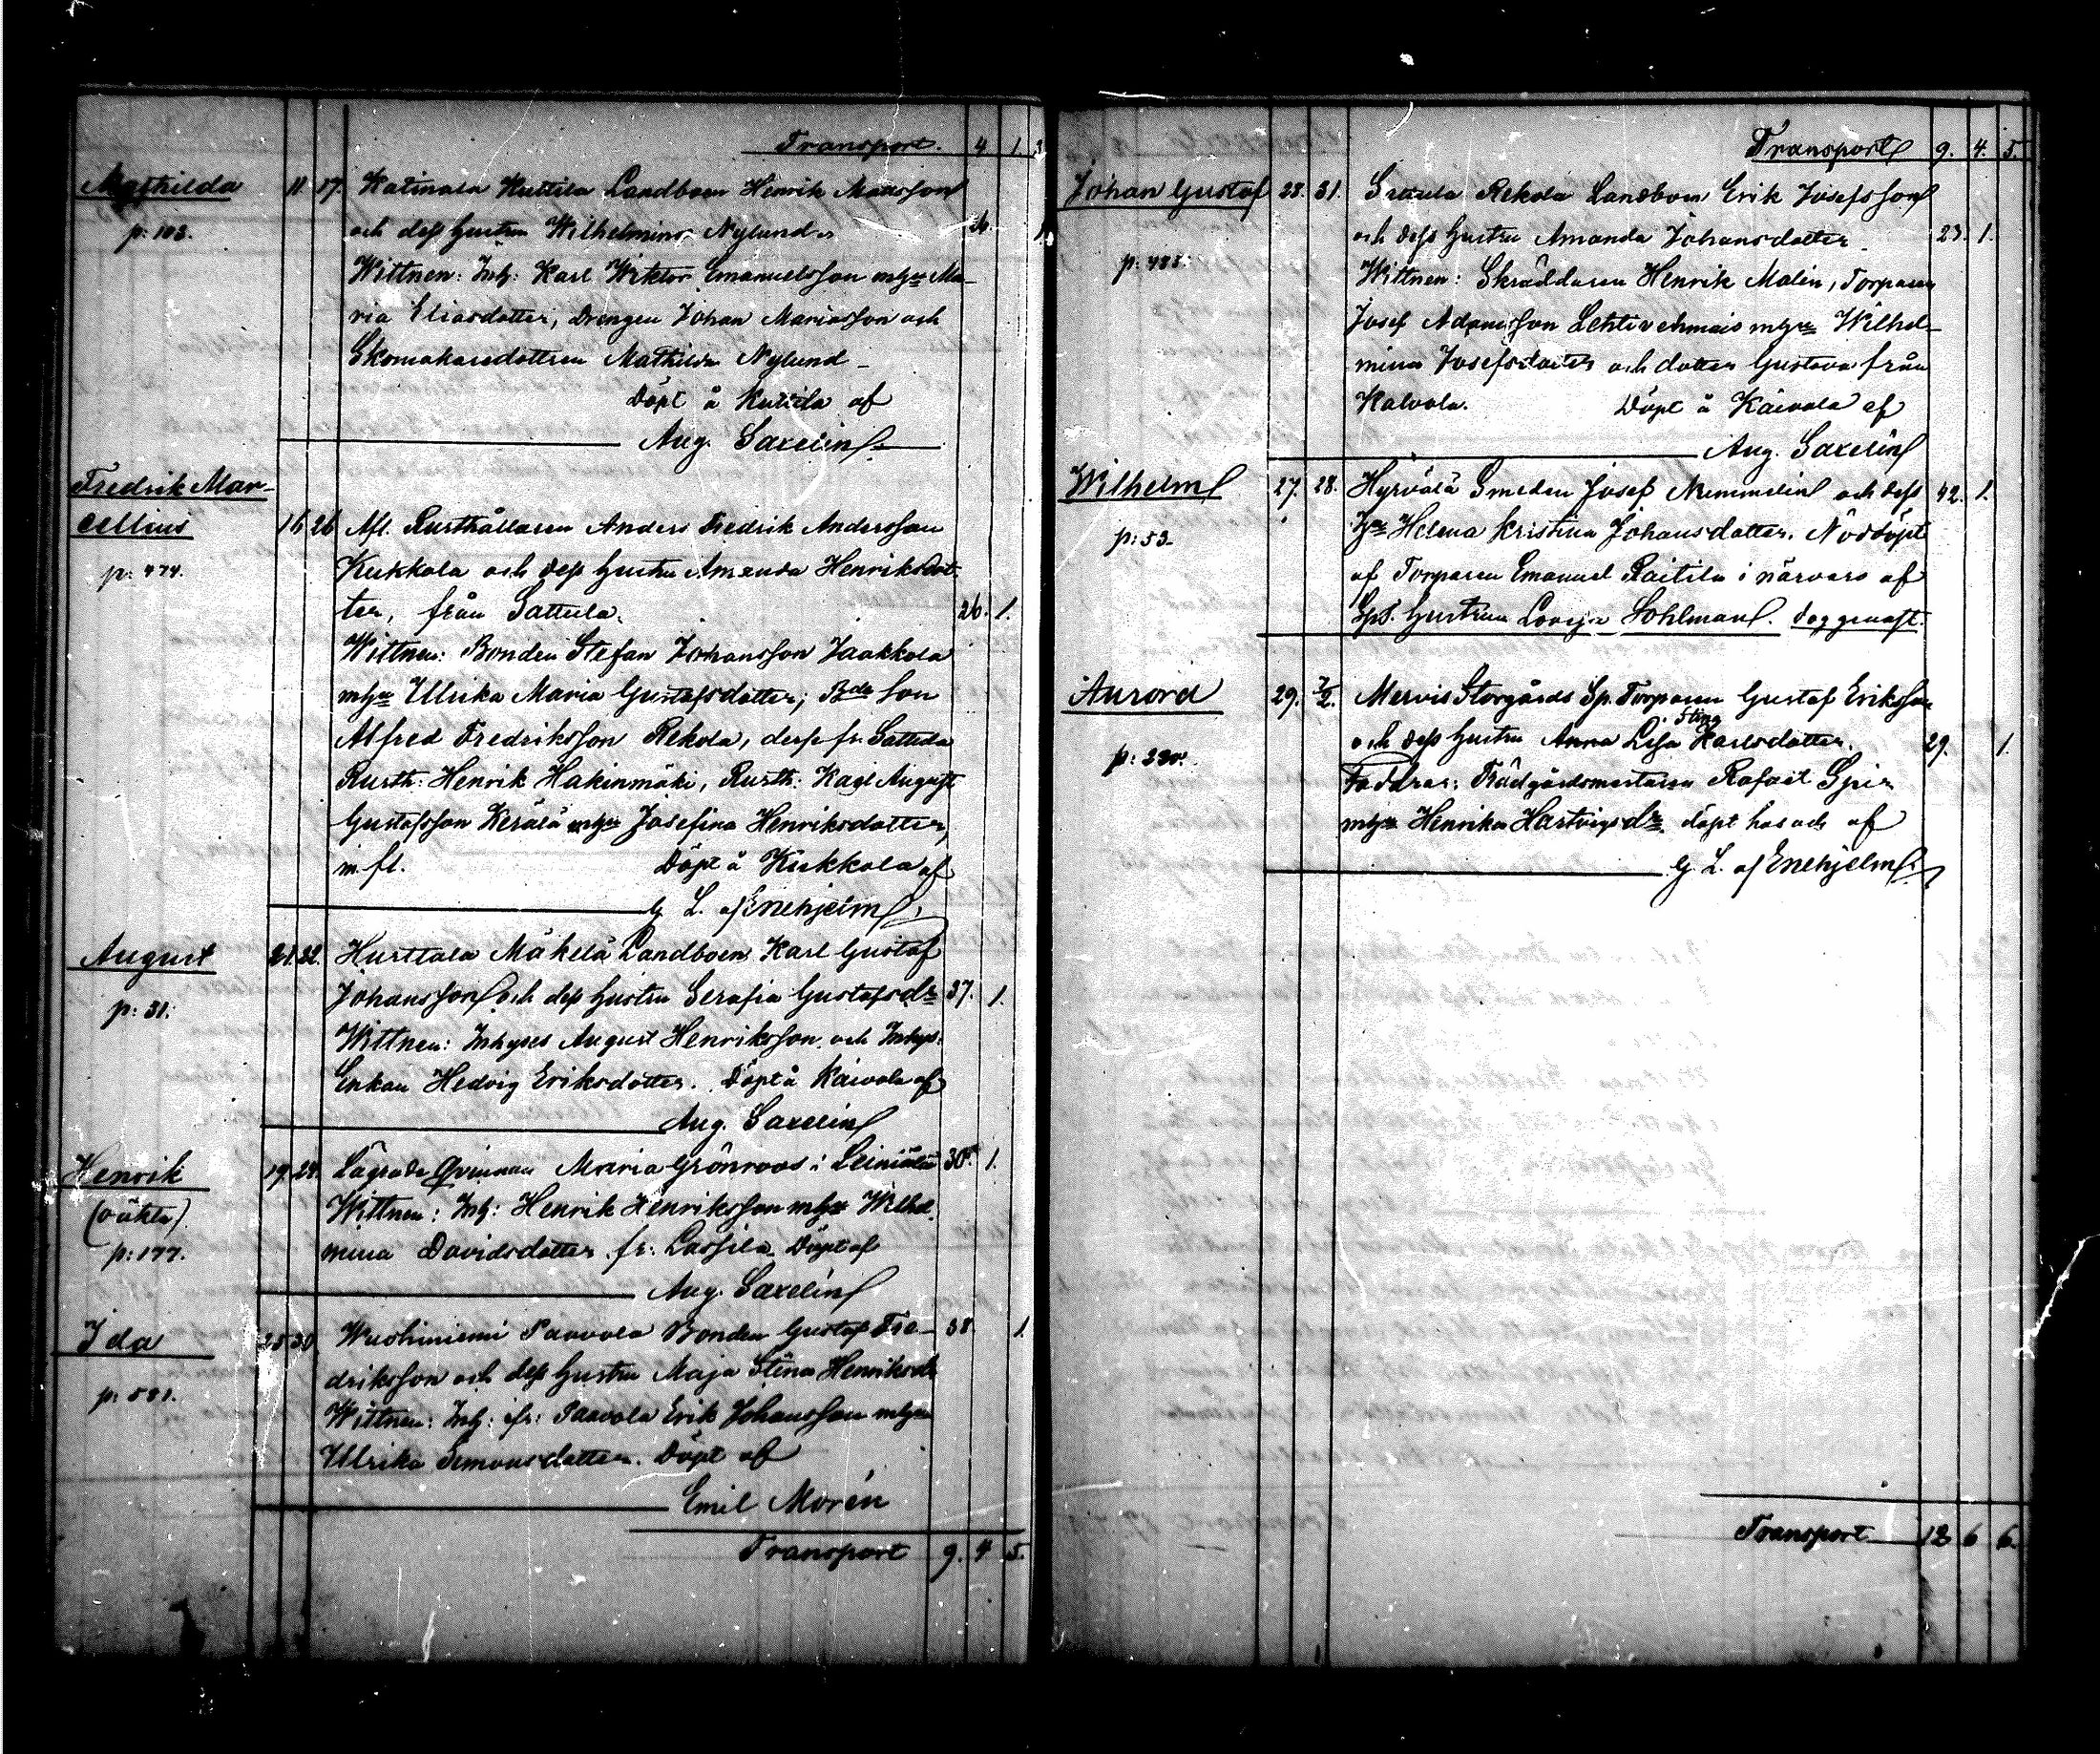 Transport. 4 1. 3
Mathilda 11. 17. Katinala Kuttila Landboen Henrik Mansson
p: 103. och dess hustru Wilhelmina Nylund.
Wittnen: Inh: Karl Wiktor Emanuelsson mhu Ma-
ria Eliasdotter, Drengen Johan Mariasson och
Skomakaredottren Mathilda Nylund -
Döpt å Kuttila af
Aug. Saxelin
Fredrik Mar-
cellius 16 26 Afl. Rusthållaren Anders Fredrik Andersson
p: 474. Kukkola och dess hustru Amanda Henriksdot-
ter, från Sattula. 26. 1.
Wittnen: Bonden Stefan Johansson Jaakkola
mhu Ulrika Maria Gustafsdotter; Bde son
Alfred Fredriksson Rekola, derss fr. Sattula
Rusth: Henrik Hakinmäki, Rusth: Karl August
Gustafsson Kerälä mhu Josefina Henriksdotter,
m. fl. Döpt å Kukkola af
G. L. af Enehjelm
August 21. 22. Hurttala Mäkelä Landboen Karl Gustaf
p: 31. Johansson och dess hustru Serafia Gustafsdr 37. 1.
Wittnen: Inhyses August Henriksson och Inhys:
Enkan Hedvig Eriksdotter. Döpt å Kaivola af
Aug. Saxelin
Henrik 19. 24. Lägrade Qvinnan Maria Grönroos i Leiniälä 30. 1.
(oäkta) Wittnen: Inh: Henrik Henriksson mhu Wilhel-
p: 177. mina Davidsdotter fr. Lassila Döpt af
Aug. Saxelin
Ida 25 30 Wuohiniemi Paavola Bonden Gustaf Fre- 38 1.
p: 581. driksson och dess hustru Maja Stina Henriksdr
Wittnen: Inh: fr: Paavola Erik Johansson mhu
Ulrika Simonsdotter. Döpt af
Emil Morén
Transport 9. 4 5.
Transport 9. 4. 5.
Johan Gustaf 28. 31. Rekola Landboen Erik Josefsson
och dess hustru Amanda Johansdotter 23. 1.
Wittnen: Skräddaren Henrik Malin, Torparen
Josef Adamsson mhu Wilhel-
mina Josefsdotter och dotter Gustava från
Kalvola. Döpt å Kaivola af
Aug. Saxelin
Wilhelm 27. 28. Hyrvälä Smeden Josef Nummelin och dess 42. 1.
p: 53. Hu Helena Kristina Johansdotter. Nöddöpt
af Torparen Emanuel Raitila i närvaro af
Hustrun Lovisa Sohlman.
Aurora 29. 7/2. Mervis Storgårds Sp. Torparen Gustaf Eriksson
Stina
och dess hustru Anna Lisa Karlsdotter. 29. 1.
Faddrar: Trädgårdsmästaren Rafael
mhu Henrika Hartvigsdr. döpt hos och af
G. L. af Enehjelm
Transport 12 6 6.